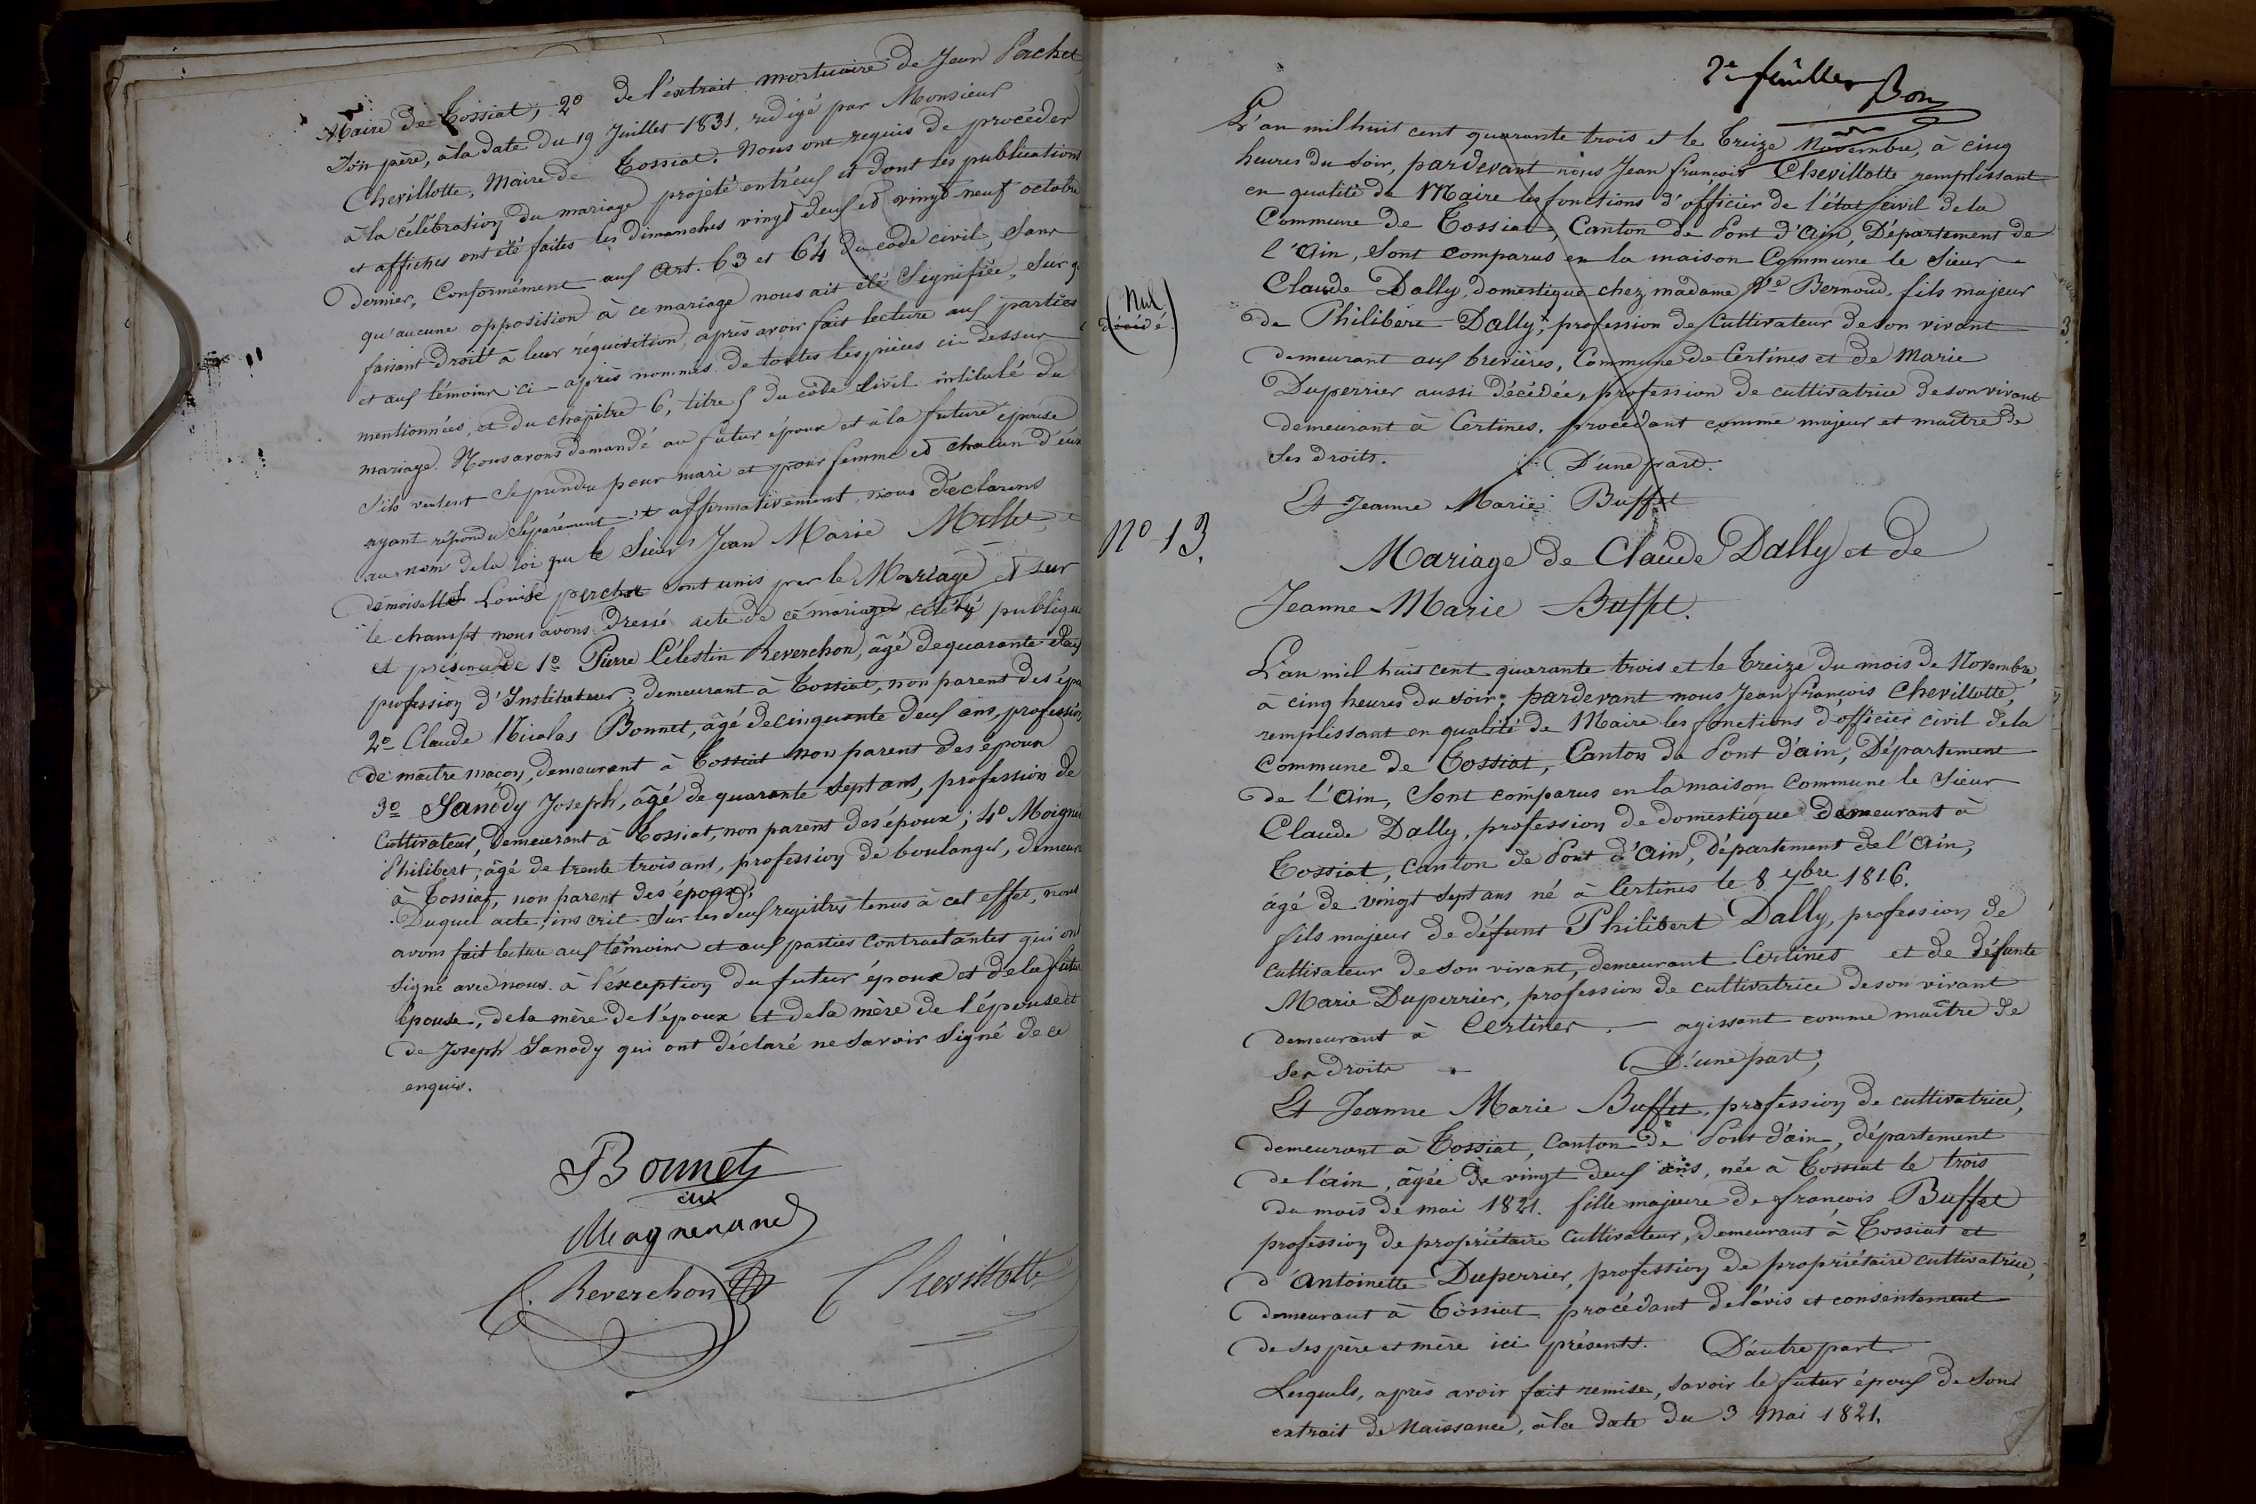 Maire de Tossiat; 2º de l'extrait mortuaire de Jean Perchet,
Son père, à la date du 19 Juillet 1831, rédigé par Monsieur
Chevillotte, Maire de Tossiat. Nous ont requis de procéder
à la célébration du mariage projeté entr'eux et dont les publications
et affiches ont été faites les dimanches vingt deux et vingt-neuf octobre
dernier, Conformément aux art. 63 et 64 du code civil, sans
qu'aucune opposition à ce mariage nous ait été Signifiée, Sur q
faisant droit à leur réquisition, après avoir fait lecture aux parties
et aux témoins ci-après nommés de toutes les pièces ci-dessus
mentionnées, et du chapitre 6, titre 5 du code Civil intitulé du
mariage. Nous avons demandé au futur époux et à la future épouse
S'ils veulent Se prendre pour mari et pour femme et chacun d'eux
ayant répondu Séparément et affirmativement, nous déclarons
au nom de la loi que le Sieur Jean Marie Millet et
demoiselle Louise perchet sont unis par le Mariage et sur
le champ nous avons dressé acte de ce mariage célébré publique
et présence de 1º Pierre Célestin Reverchon, âgé de quarante deux
profession d'Instituteur, demeurant à Tossiat, non parent des épo
2º Claude Nicolas Bonnet, âgé de cinquante deux ans, profession
de maître maçon, demeurant à Tossiat non parent des époux
3º Janody Joseph, âgé de quarante Sept ans, profession de
Cultivateur, demeurant à Tossiat, non parent des époux; 4º Moigni
Philibert, âgé de trente trois ans, profession de boulanger, demeur
à Tossiat, non parent des époux;
Duquel acte, inscrit Sur les deux registres tenus à cet effet, nous
avons fait lecture aux témoins et aux parties contractantes qui on
Signé avec nous à l'exception du futur époux et de la futu
épouse, de la mère de l'époux et de la mère de l'épouse et
de Joseph Janody qui ont déclaré ne Savoir Signé de ce
enquis.
Bonnet
Magnenand
C. Reverchon Chevillotte
2e feuillet Bon
L'an mil huit cent quarante trois et le Treize Novembre, à cinq
heures du Soir, pardevant nous Jean françois Chevillotte remplissant
en qualité de Maire les fonctions d'officier de l'état civil de la
Commune de Tossiat, Canton de Pont d'Ain, Département de
l'Ain, Sont comparus en la maison Commune le Sieur
Claude Dally, domestique chez madame Ve Bernoud, fils majeur
de Philibert Dally, profession de Cultivateur de son vivant
demeurant aux brevières, Commune de Certines et de Marie
Duperrier aussi décédée, profession de cultivatrice de son vivant
demeurant à Certines, procédant comme majeur et maître de
Ses droits. D'une part.
Et Jeanne Marie Buffet
(Nul
décédé)
Nº 13.
Mariage de Claude Dally et de
Jeanne Marie Buffet.
L'an mil huit cent quarante trois et le Treize du mois de Novembre,
à cinq heures du soir; pardevant nous Jean françois Chevillotte,
remplissant en qualité de Maire les fonctions d'officier civil de la
Commune de Tossiat, Canton de Pont d'ain, Département
de l'ain, Sont comparus en la maison Commune le Sieur
Claude Dally, profession de domestique demeurant à
Tossiat, Canton de Pont d'Ain, département de l'Ain,
âgé de vingt Sept ans né à Certines le 8 ybre 1816.
fils majeur de défunt Philibert Dally, profession de
cultivateur de son vivant, demeurant Certines et de défunte
Marie Duperrier, profession de cultivatrice de son vivant
demeurant à Certines. — agissant comme maître de
Ses droits D'une part;
Et Jeanne Marie Buffet, profession de cultivatrice,
demeurant à Tossiat, canton de Pont d'ain, département
de l'ain, âgée de vingt deux ans, née à Tossiat le trois
du mois de mai 1821. fille majeure de françois Buffet
profession de propriétaire Cultivateur, demeurant à Tossiat et
d'Antoinette Duperrier, profession de propriétaire cultivatrice,
demeurant à Tossiat procédant de l'avis et consentement
de ses père et mère ici présents. D'autre part
Lesquels, après avoir fait remise, savoir le futur époux de Son
extrait de Naissance, à la date du 3 Mai 1821.